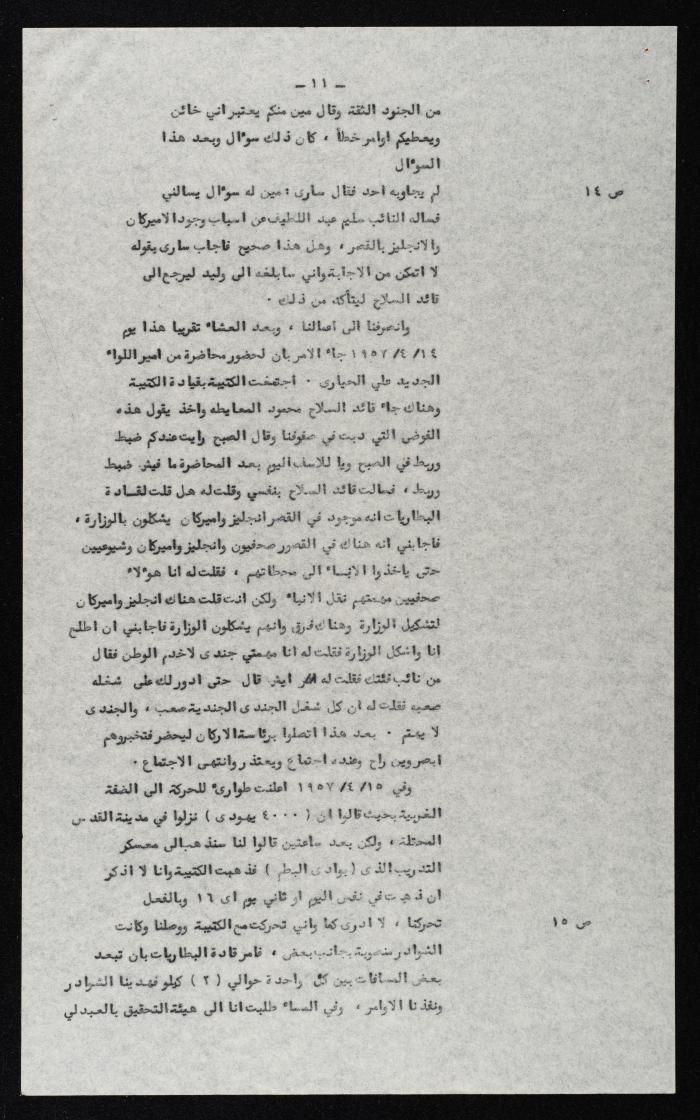 - ١١ -
من الجنود الثقة وقال مين منكم يعتبر اني خائن
ويعطيكم اوامر خطأ ، كان ذلك سوءال وبعد هذا
السوءال
لم يجاوبه احد فقال سارى : مين له سوءال يسالني
ص ١٤
فساله النائب سليم عبد اللطيف عن اسباب وجود الاميركان
والانجليز بالقصر ، وهل هذا صحيح فاجاب سارى بقوله
لا اتمكن من الاجابة واني سابلغه الى وليد ليرجع الى
قائد السلاح ليتأكد من ذلك .
وانصرفنا الى اعمالنا ، وبعد العشاء تقريبا هذا يوم
١٤/ ٤/ ١٩٥٧ جاء الامر بان لحضور محاضرة من امير اللواء
الجديد علي الحيارى . اجتمعت الكتيبة بقيادة الكتيبة
وهناك جاء قائد السلاح محمود المعايطه واخذ يقول هذه
الفوضى التي دبت في صفوفنا وقال الصبح رايت عندكم ضبط
وربط في الصبح ويا للاسف اليوم بعد المحاضرة ما فيش ضبط
وربط ، فسالت قائد السلاح بنفسي وقلت له هل قلت لقادة
البطاريات انه موجود في القصر انجليز واميركان يشكلون بالوزارة ،
فاجابني انه هناك في القصور صحفيون وانجليز واميركان وشيوعيين
حتى ياخذوا الانباء الى محطاتهم ، فقلت له انا هوءلاء
صحفيين مهمتهم نقل الانباء ولكن انت قلت هناك انجليز واميركان
لتشكيل الوزارة وهناك فرق وانهم يشكلون الوزارة فاجابني ان اطلع
انا واشكل الوزارة فقلت له انا مهمتي جندى لاخدم الوطن فقال
من نائب فئتك فقلت له ايش قال حتى ادور لك على شغله
صعبه فقلت له ان كل شغل الجندى الجندية صعب ، والجندى
لا يهتم . بعد هذا اتصلوا برئاسة الاركان ليحضر فتخبروهم
ابصر وين راح وعنده اجتماع ويعتذر وانتهى الاجتماع .
وفي ١٥/ ٤/ ١٩٥٧ اعلنت طوارىء للحركة الى الضفة
الغربية بحيث قالوا ان ( ٤٠٠٠ يهودى ) نزلوا في مدينة القدس
المحتلة ، ولكن بعد ساعتين قالوا لنا سنذهب الى معسكر
التدريب الذى ( بوادى البطم ) فذهبت الكتيبة وانا لا اذكر
ان ذهبت في نفس اليوم او ثاني يوم اى ١٦ وبالفعل
تحركنا ، لا ادرى كما واني تحركت مع الكتيبة ووصلنا وكانت
ص ١٥
الشوادر منصوبة بجانب بعض ، فامر قادة البطاريات بان تبعد
بعض المسافات بين كل واحدة حوالي ( ٢ ) كيلو فهدينا الشوادر
ونفذنا الاوامر ، وفي المساء طلبت انا الى هيئة التحقيق بالعبدلي